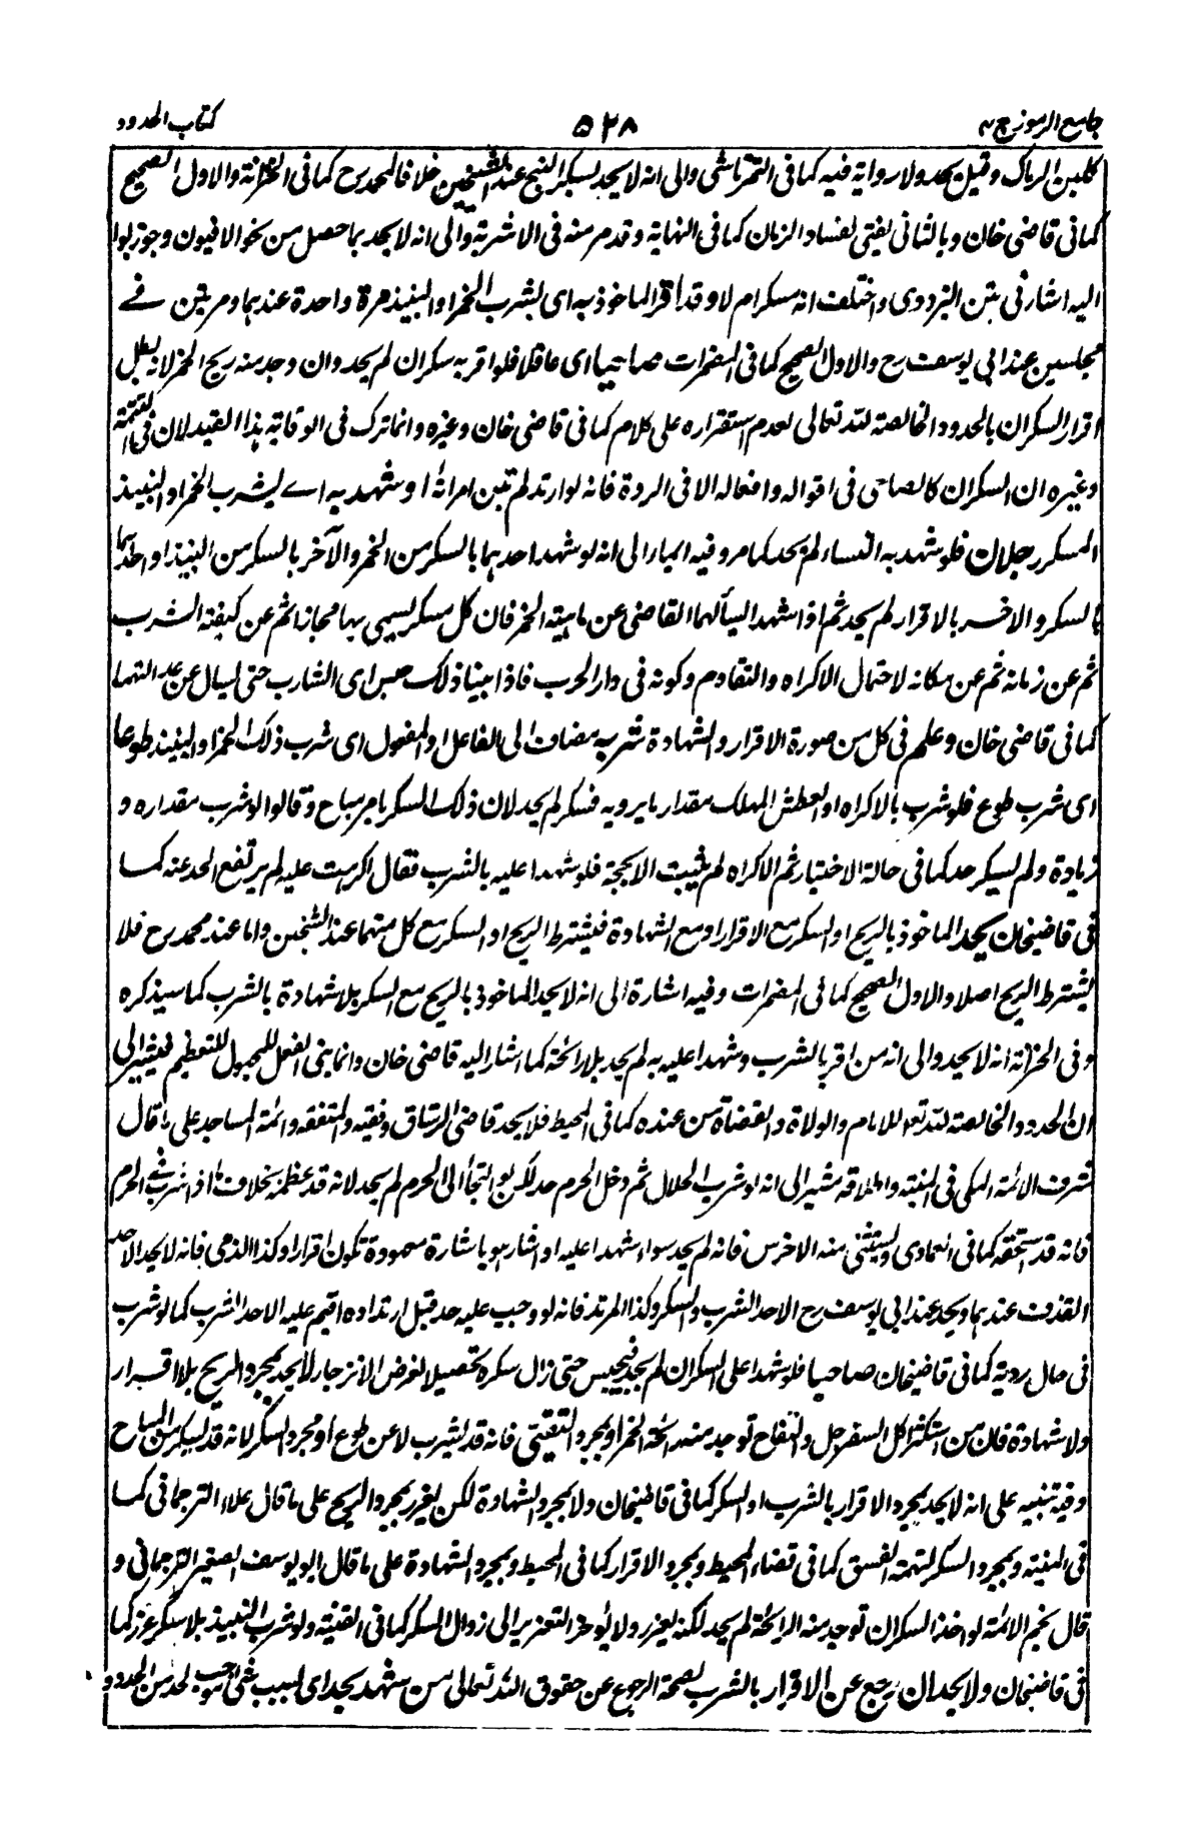 جامع الرموز ج ۴
۵۲۸
كتاب الحدود
كلبن الرماك وقيل يحد ولا رواية فيه كما في التمرتاشي والى انه لا يحد بسكر البنج عند الشيخين خلافا لمحمد رح كما في الخزانة والاول الصحيح
كما في قاضي خان وبالثاني يفتى لفساد الزمان كما في النهاية وقد مر منه في الاشربة والى انه لا يحد بما حصل من نحو الافيون وجوز بوا
اليه اشار في متن البزدوى واختلف انه مسكر ام لا وقد اقر الماخوذ به اى بشرب الخمر او النبيذ مرة واحدة عندهما ومرتين في
مجلسين عند ابي يوسف رح والاول الصحيح كما في المضمرات صاحيا اى عاقلا فلو اقر به سكران لم يحد وان وجد منه ريح الخمر لانه بطل
اقرار السكران بالحدود الخالصة لله تعالى لعدم استقراره على كلام كما في قاضي خان وغيره وانما ترك في الوقاية هذا القيد لان في التتمة
وغيره ان السكران كالصاحى في اقواله وافعاله الا في الردة فانه لو ارتد لم تبن امرأته او شهد به اے بشرب الخمر او النبيذ
المسكر رجلان فلو شهد به النساء لم يحد كما مر وفيه ايماء الى انه لو شهد احدهما بالسكر من الخمر والآخر بالسكر من النبيذ او احدهما
بالسكر والاخر بالاقرار لم يحد ثم اذا شهدا يسألهما القاضى عن ماهية الخمر فان كل مسكر يسمى بها مجازا ثم عن كيفية الشرب
ثم عن زمانه ثم عن مكانه لاحتمال الاكراه والتقادم وكونه في دار الحرب فاذا بينا ذلك حبس اى الشارب حتى يسال عن عدالتهما
كما في قاضي خان وعلم في كل من صورة الاقرار والشهادة شربه مضاف الى الفاعل او المفعول اى شرب ذلك الخمر او النبيذ طوعا
اى شرب طوع فلو شرب بالاكراه او العطش المهلك مقدار ما يرويه فسكر لم يحد لان ذلك السكر بامر مباح وقالوا لو شرب مقداره و
زيادة ولم يسكر حد كما في حالة الاختيار ثم الاكراه لم يثبت الا بحجة فلو شهدا عليه بالشرب فقال اكرهت عليه لم يرتفع الحد عنه كما
في قاضيخان يحد الماخوذ بالريح او السكر مع الاقرار او مع الشهادة فيشترط الريح او السكر مع كل منهما عند الشيخين واما عند محمد رح فلا
يشترط الريح اصلا والاول الصحيح كما في المضمرات وفيه اشارة الى انه لا يحد الماخوذ بالريح مع السكر بلا شهادة بالشرب كما سيذكره
وفى الخزانة انه لا يحد والى انه من اقر بالشرب وشهدا عليه به لم يحد بلا رائحة كما اشار اليه قاضي خان وانما بنى الفعل للمجهول للتعظيم فيشير الى
ان الحدود الخالصة لله تعالى للامام والولاة والقضاة من عنده كما في المحيط فلا يحد قاضى الرستاق وفقيه والمتفقه وائمة المساجد على ما قال
شرف الائمة المكى في المنية واطلاقه مشير الى انه لو شرب الحلال ثم دخل الحرم حد لكن لو التجأ الى الحرم لم يحد لانه قد عظمه بخلاف ما اذا شرب في الحرم
فانه قد استخفه كما في العمادى ويستثنى منه الاخرس فانه لم يحد سواء شهدا عليه او اشار هو باشارة معهودة تكون اقرارا وكذا الذمى فانه لا يحد الا حد
القذف عندهما ويحد عند ابي يوسف رح الا حد الشرب والسكر وكذا المرتد فانه لو وجب عليه حد قبل ارتداده اقيم عليه الا حد الشرب كما لو شرب
في حال ردته كما في قاضيخان صاحيا فلو شهدا على السكران لم يحد فيحبس حتى زال سكره تحصيلا لغرض الانزجار لا يحد بمجرد الريح بلا اقرار
ولا شهادة فان من استكثر اكل السفرجل والتفاح توجد منه رائحة الخمر او بمجرد التقيئ فانه قد يشرب لا عن طوع او بمجرد السكر لانه قد يسكر من المباح
وفيه تنبيه على انه لا يحد بمجرد الاقرار بالشرب او السكر كما في قاضيخان ولا بمجرد الشهادة لكن يعزر بمجرد الريح على ما قال علاء الترجمانى كما
في المنية وبمجرد السكر لتهمة الفسق كما في قضاء المحيط وبمجرد الاقرار كما في المحيط وبمجرد الشهادة على ما قال ابو يوسف الصغير الترجمانى و
قال نجم الائمة لو اخذ السكران توجد منه الرائحة لم يحد لكنه يعزر ولا يؤخر التعزير الى زوال السكر كما في القنية ولو شرب النبيذ بلا سكر عزر كما
في قاضيخان ولا يحد ان رجع عن الاقرار بالشرب لصحة الرجوع عن حقوق الله تعالى من شهد بحد اى بسبب شئ موجب لحد من الحدود